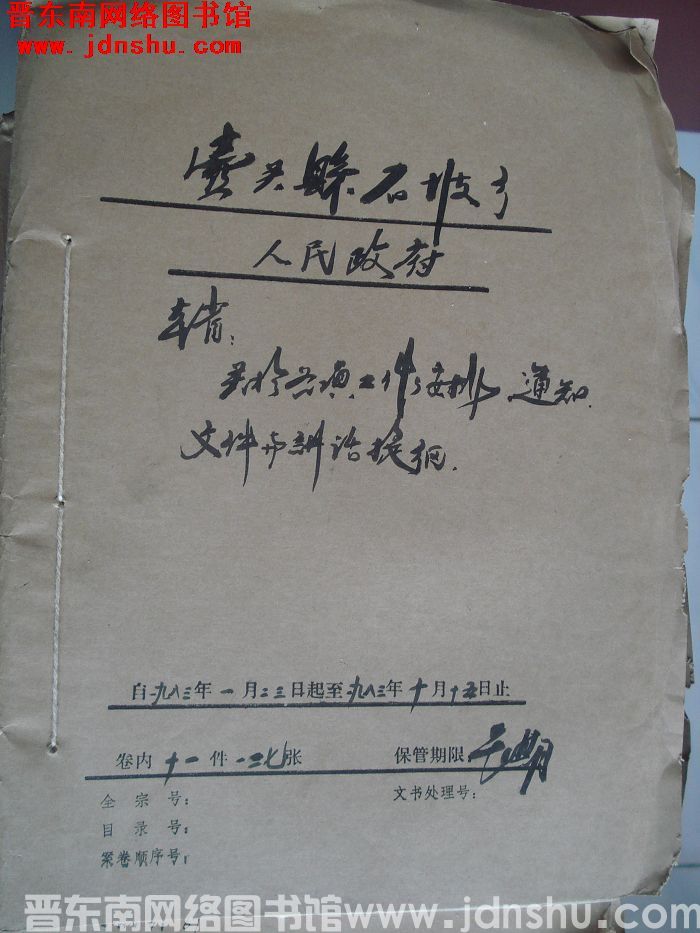 晋东南网络图书馆
www.jdnshu.com
壶关县石坡乡
人民政府
本省:
关于各项工作安排、通知、
文件与讲话提纲.
自一九八三年一月二三日起至一九八三年十月十五日止
卷内十一件一二七张 保管期限:长期
全宗号: 文书处理号:
目录号:
案卷顺序号:
晋东南网络图书馆 www.jdnshu.com